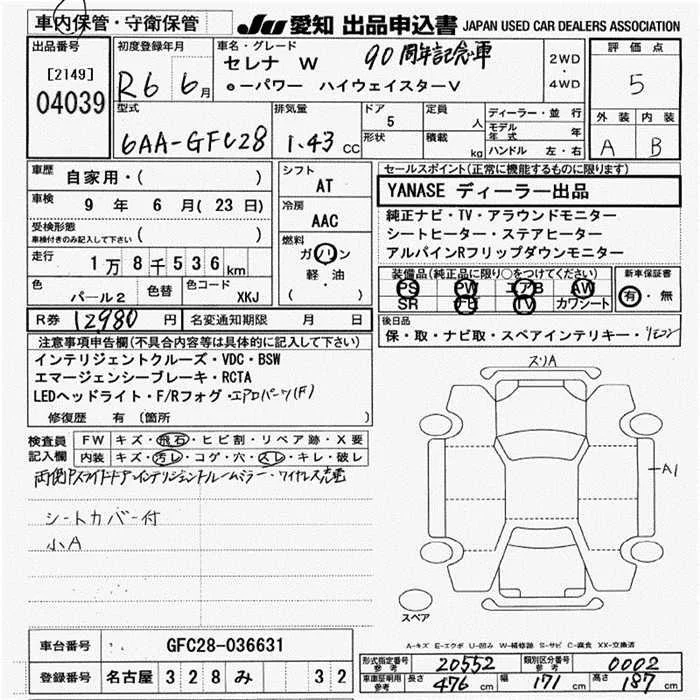 車内保管・守衛保管
JU 愛知 出品申込書 JAPAN USED CAR DEALERS ASSOCIATION
出品番号
[2149]
04039
初度登録年月
R6 6月
車名・グレード
セレナ W 90周年記念車
e-パワー ハイウェイスターV
2WD
・
4WD
評価点
5
外装 内装
A B
型式
6AA-GFC28
排気量
1.43 CC
ドア
5
形状
定員
人
積載
kg
ディーラー・並行
モデル年式 年
ハンドル 左・右
車歴
自家用・( )
車検
9年 6月(23日)
受検形態
車検付きのみ記入して下さい ( )
走行
1万8千536km
色
パール2
色替
色コード
XKJ
シフト
AT
冷房
AAC
燃料
ガソリン
軽・油
( )
セールスポイント(正常に機能するものに限ります)
YANASE ディーラー出品
純正ナビ・TV・アラウンドモニター
シートヒーター・ステアヒーター
アルパインRフリップダウンモニター
装備品(純正品に限り○をつけてください)
PS PW エアB AW
SR ナビ TV カワシート
新車保証書
有・無
R券 12980円 名変通知期限 月 日
後日品
保・取・ナビ取・スペアインテリキー・リモコン
注意事項申告欄(不具合内容等は具体的に記入して下さい)
インテリジェントクルーズ・VDC・BSW
エマージェンシーブレーキ・RCTA
LEDヘッドライト・F/Rフォグ・エアロパーツ(F)
修復歴 有 (箇所 )
検査員記入欄
FW キズ・飛石・ヒビ割・リペア跡・X要
内装 キズ・汚レ・コゲ・穴・スレ・キレ・破レ
両側Pスライドドア・インテリジェントルームミラー・ワイヤレス充電
シートカバー付
小A
スリA
A1
スペア
A-キズ E-エクボ U-凹み W-補修跡 S-サビ C-腐食 XX-交換済
車台番号 GFC28-036631
登録番号 名古屋 328 み 32
形式指定番号 参考 20552 類別区分番号 参考 0002
車庫証明用 参考 長さ 476cm 幅 171cm 高さ 187cm